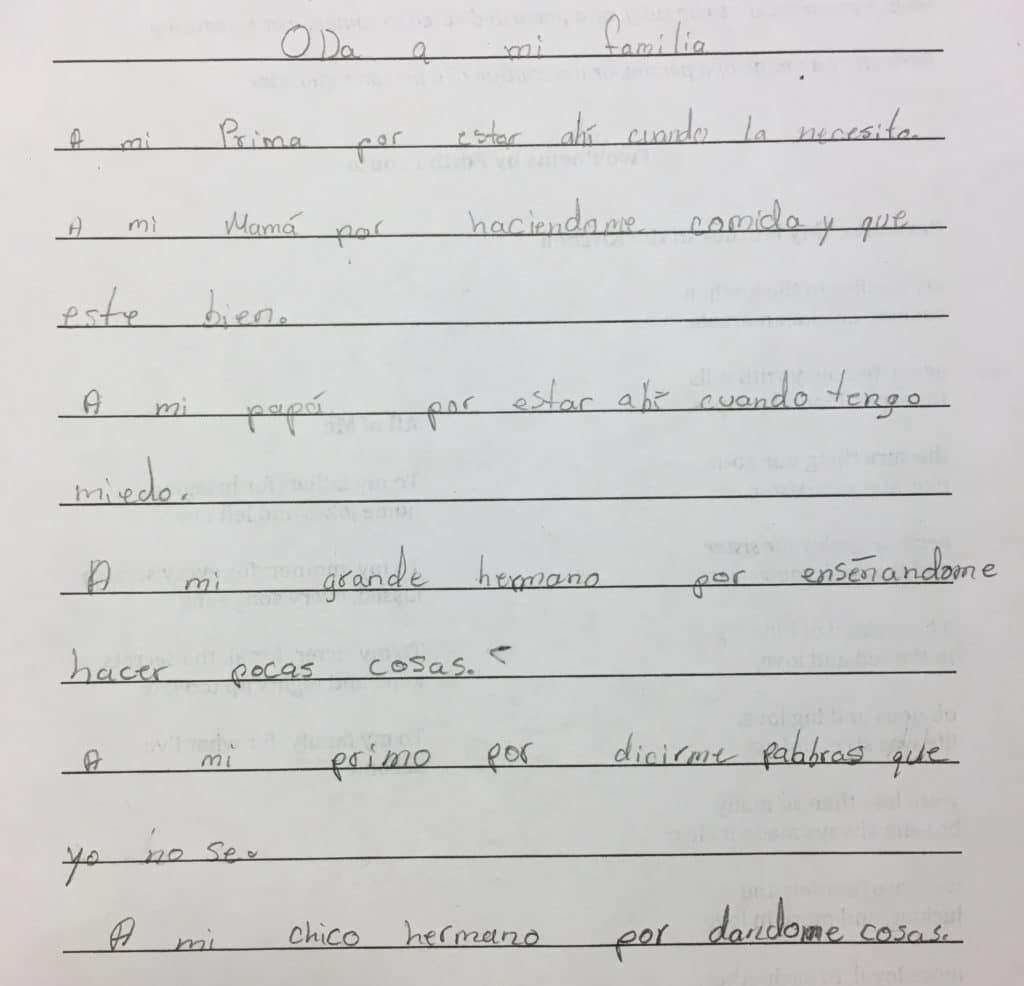 ODa a mi familia
A mi Prima por estar ahí cuando la necesito.
A mi Mamá por haciendome comida y que
este bien.
A mi papá por estar ahí cuando tengo
miedo.
A mi grande hermano por enseñandome
hacer pocas cosas.
A mi primo por dicirme palabras que
yo no se.
A mi chico hermano por dandome cosas.